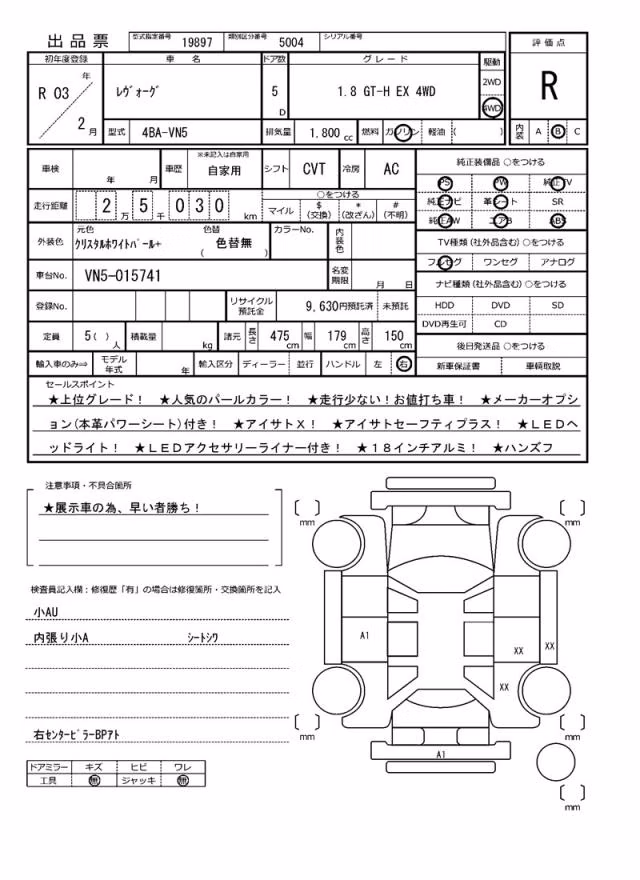 出品票 型式指定番号 19897 類別区分番号 5004 シリアル番号
評価点
R
初年度登録 車名 ドア数 グレード 駆動
R 03 年 2 月
ﾚｳﾞｫｰｸﾞ 5 D 1.8 GT-H EX 4WD
2WD
4WD
型式 4BA-VN5 排気量 1.800 cc 燃料 ガソリン 軽油 ( )
内装 A B C
車検 年 月 車歴 ※未記入は自家用 自家用 シフト CVT 冷房 AC
純正装備品 ○をつける
PS PW 純正TV
純正ナビ 革シート SR
純正AW エアB ABS
走行距離 2 万 5 千 0 3 0 km
○をつける
マイル $ (交換) * (改ざん) # (不明)
外装色 元色 ｸﾘｽﾀﾙﾎﾜｲﾄﾊﾟｰﾙ+ 色替 ( 色替無 ) カラーNo. 内装色
TV種類 (社外品含む) ○をつける
フルセグ ワンセグ アナログ
車台No. VN5-015741 名変期限 月 日
ナビ種類 (社外品含む) ○をつける
HDD DVD SD
DVD再生可 CD
登録No. リサイクル預託金 9,630円預託済 未預託
定員 5( ) 人 積載量 kg 諸元 長さ 475 cm 幅 179 cm 高さ 150 cm
後日発送品 ○をつける
新車保証書 車輌取説
輸入車のみ⇨ モデル年式 年 輸入区分 ディーラー 並行 ハンドル 左 右
セールスポイント
★上位グレード！ ★人気のパールカラー！ ★走行少ない！お値打ち車！ ★メーカーオプシ
ョン(本革パワーシート)付き！ ★アイサトＸ！ ★アイサトセーフティプラス！ ★ＬＥＤヘ
ッドライト！ ★ＬＥＤアクセサリーライナー付き！ ★１８インチアルミ！ ★ハンズフ
注意事項・不具合箇所
★展示車の為、早い者勝ち！
検査員記入欄：修復歴「有」の場合は修復箇所・交換箇所を記入
小AU
内張り小A ｼｰﾄｼﾜ
右ｾﾝﾀｰﾋﾟﾗｰBPｱﾄ
ドアミラー キズ ヒビ ワレ
工具 無 ジャッキ 無
mm
mm
A1
XX
XX
XX
mm
mm
A1
mm